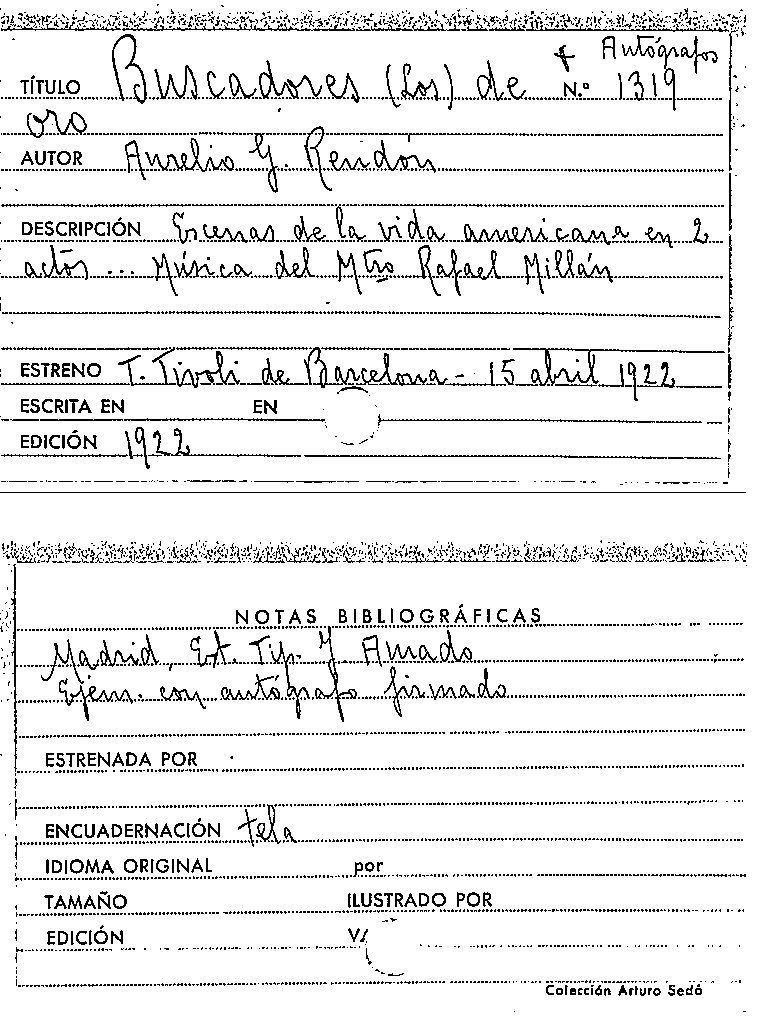 + Autógrafos
TÍTULO Buscadores (Los) de N.º 1319
oro
AUTOR Aurelio G. Rendón
DESCRIPCIÓN Escenas de la vida americana en 2
actos... Música del Mtro Rafael Millán
ESTRENO T. Tívoli de Barcelona - 15 abril 1922
ESCRITA EN EN
EDICIÓN 1922
NOTAS BIBLIOGRÁFICAS
Madrid, Est. Tip. J. Amado
Ejem. con autógrafo firmado
ESTRENADA POR
ENCUADERNACIÓN tela
IDIOMA ORIGINAL por
TAMAÑO ILUSTRADO POR
EDICIÓN
Colección Arturo Sedó